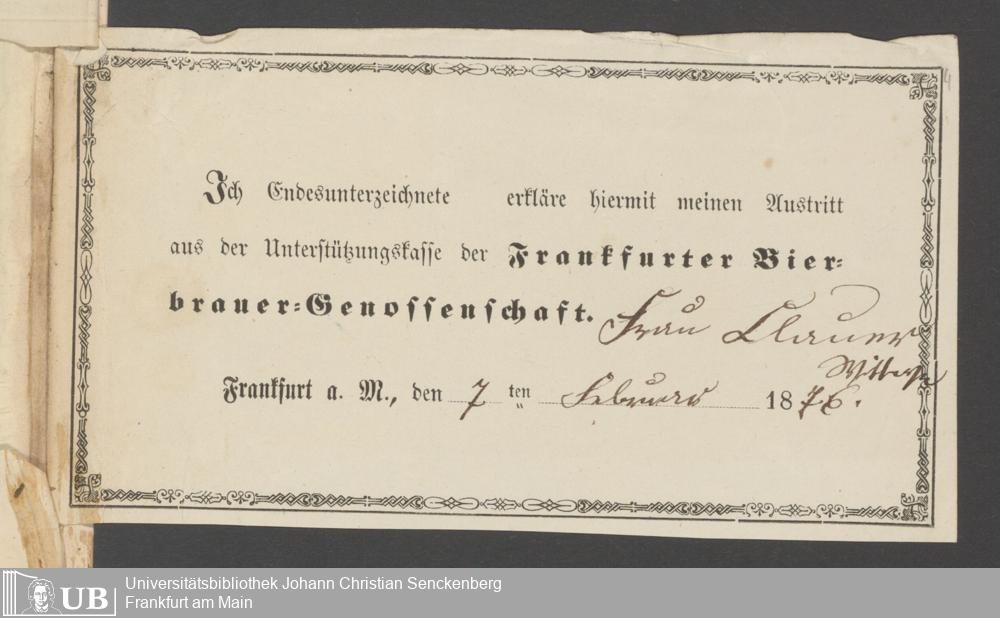 Ich Endesunterzeichnete erkläre hiermit meinen Austritt
aus der Unterstützungskasse der Frankfurter Bier-
brauer-Genossenschaft. Frau Clauer
Wittwe
Frankfurt a. M., den 7 ten Februar 1876.
UB Universitätsbibliothek Johann Christian Senckenberg
Frankfurt am Main